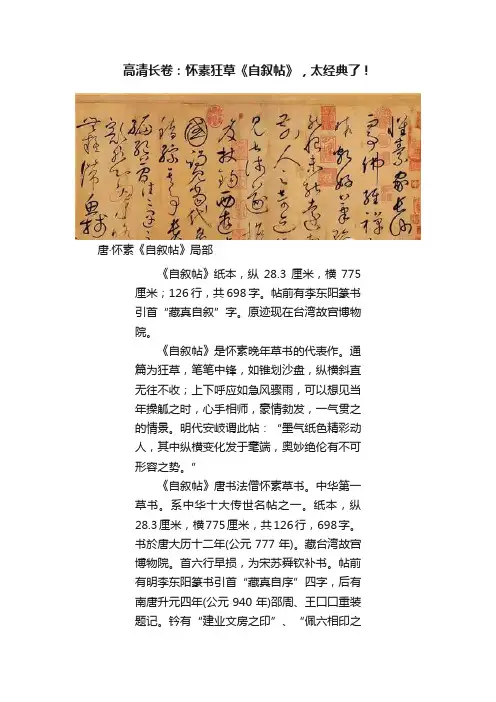 高清长卷：怀素狂草《自叙帖》，太经典了！
唐·怀素《自叙帖》局部
《自叙帖》纸本，纵28.3厘米，横775
厘米；126行，共698字。帖前有李东阳篆书
引首“藏真自叙”字。原迹现在台湾故宫博物
院。
《自叙帖》是怀素晚年草书的代表作。通
篇为狂草，笔笔中锋，如锥划沙盘，纵横斜直
无往不收；上下呼应如急风骤雨，可以想见当
年操觚之时，心手相师，豪情勃发，一气贯之
的情景。明代安岐谓此帖：“墨气纸色精彩动
人，其中纵横变化发于毫端，奥妙绝伦有不可
形容之势。”
《自叙帖》唐书法僧怀素草书。中华第一
草书。系中华十大传世名帖之一。纸本，纵
28.3厘米，横775厘米，共126行，698字。
书於唐大历十二年(公元777年)。藏台湾故宫
博物院。首六行早损，为宋苏舜钦补书。帖前
有明李东阳篆书引首“藏真自序”四字，后有
南唐升元四年(公元940年)邵周、王口口重装
题记。钤有“建业文房之印”、“佩六相印之